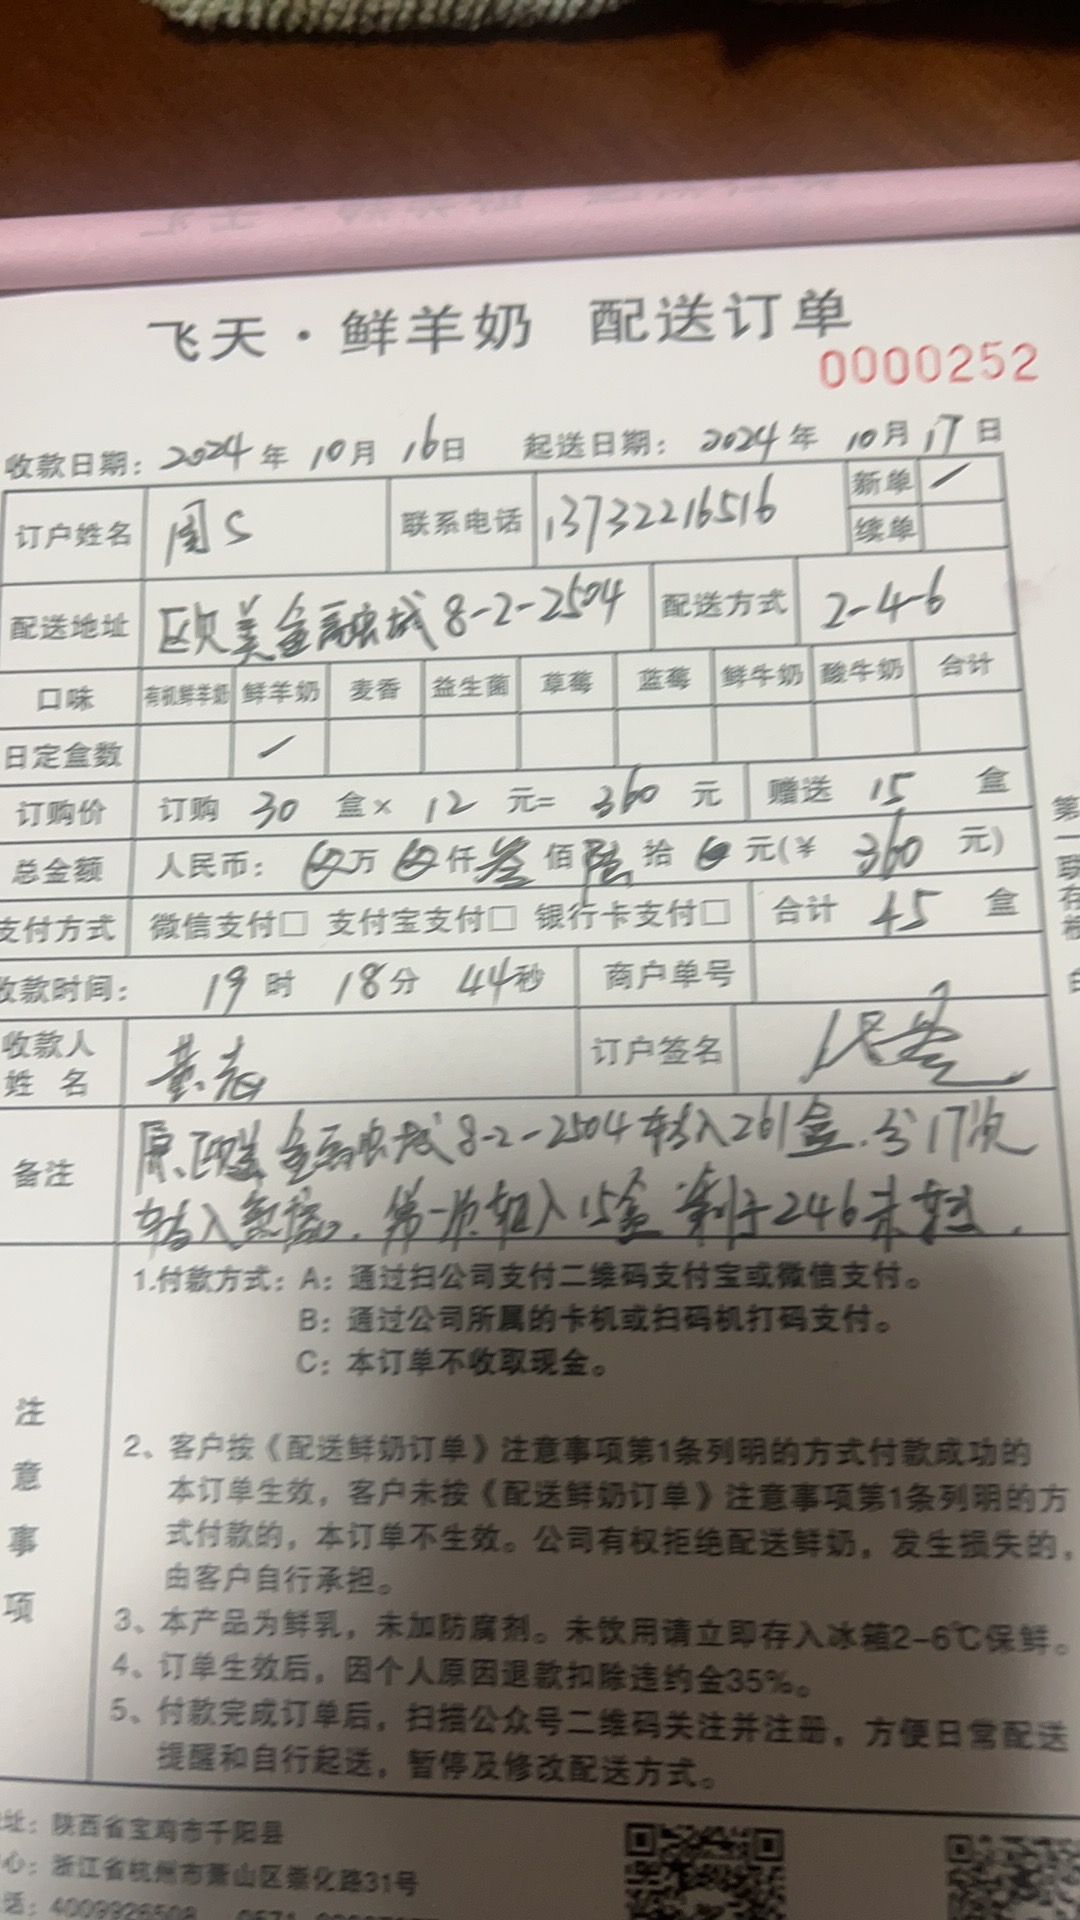 飞天·鲜羊奶 配送订单
0000252
收款日期: 2024年 10月 16日 起送日期: 2024年 10月 17日
订户姓名 周S 联系电话 13732216516 新单 /
续单
配送地址 欧美金融城8-2-2504 配送方式 2-4-6
口味 有机鲜羊奶 鲜羊奶 麦香 益生菌 草莓 蓝莓 鲜牛奶 酸牛奶 合计
日定盒数 /
订购价 订购 30 盒× 12 元= 360 元 赠送 15 盒
总金额 人民币: 万 仟 叁 佰 陆 拾 元(¥ 360 元)
支付方式 微信支付□ 支付宝支付□ 银行卡支付□ 合计 45 盒
收款时间: 19时 18分 44秒 商户单号
收款人
姓 名 订户签名
备注 原欧美金融城8-2-2504转入261盒.分17次
转入 第一次转入15盒 剩于246未转.
第一联存根
注意事项
1.付款方式: A: 通过扫公司支付二维码支付宝或微信支付。
B: 通过公司所属的卡机或扫码机打码支付。
C: 本订单不收取现金。
2、客户按《配送鲜奶订单》注意事项第1条列明的方式付款成功的
本订单生效，客户未按《配送鲜奶订单》注意事项第1条列明的方
式付款的，本订单不生效。公司有权拒绝配送鲜奶，发生损失的，
由客户自行承担。
3、本产品为鲜乳，未加防腐剂。未饮用请立即存入冰箱2-6℃保鲜。
4、订单生效后，因个人原因退款扣除违约金35%。
5、付款完成订单后，扫描公众号二维码关注并注册，方便日常配送
提醒和自行起送，暂停及修改配送方式。
址: 陕西省宝鸡市千阳县
心: 浙江省杭州市萧山区崇化路31号
话: 4009926508